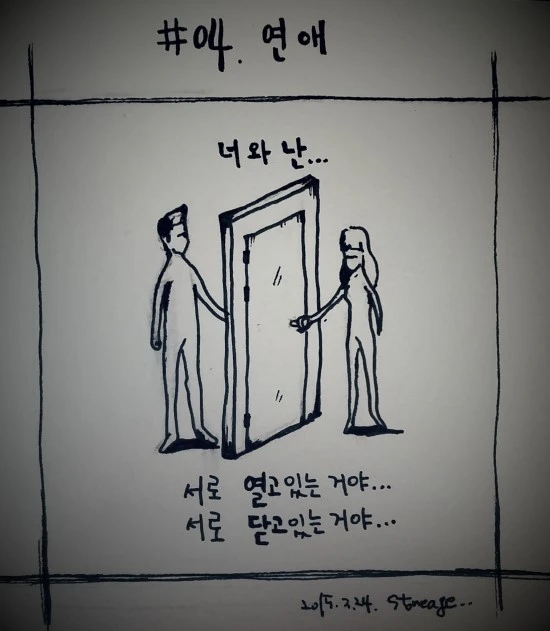 #04. 연애
너와 난...
서로 열고있는 거야...
서로 닫고있는 거야...
2015.2.24.